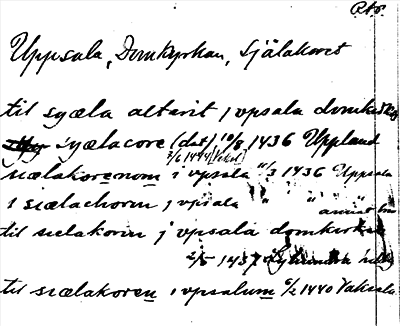 Rtr.
Uppsala, Domkyrkan, Själakoret
til syæla altarit j vpsala domkirkio
syælacore (dat) 10/8 1436 Uppland
2/6 1444 Vaksala
siælakorenom i vpsala 11/3 1436 Uppsala
i siælachorin j vpsala " " annat
til sielakorin j vpsala domkirkio
2/5 1437
til siælakoren i vpsalum 6/2 1440 Vaksala